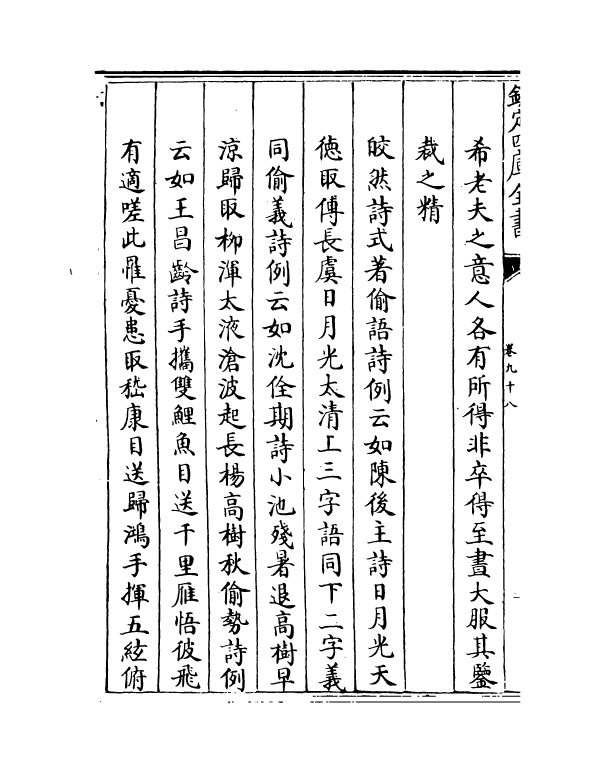 欽定四庫全書
卷九十八
希老夫之意人各有所得非卒得至晝大服其鑒
裁之精
皎然詩式著偷語詩例云如陳後主詩日月光天
德取傅長虞日月光太清上三字語同下二字義
同偷義詩例云如沈佺期詩小池殘暑退高樹早
涼歸取柳渾太液滄波起長楊高樹秋偷勢詩例
云如王昌齡詩手攜雙鯉魚目送千里雁悟彼飛
有適嗟此罹憂患取嵇康目送歸鴻手揮五絃俯